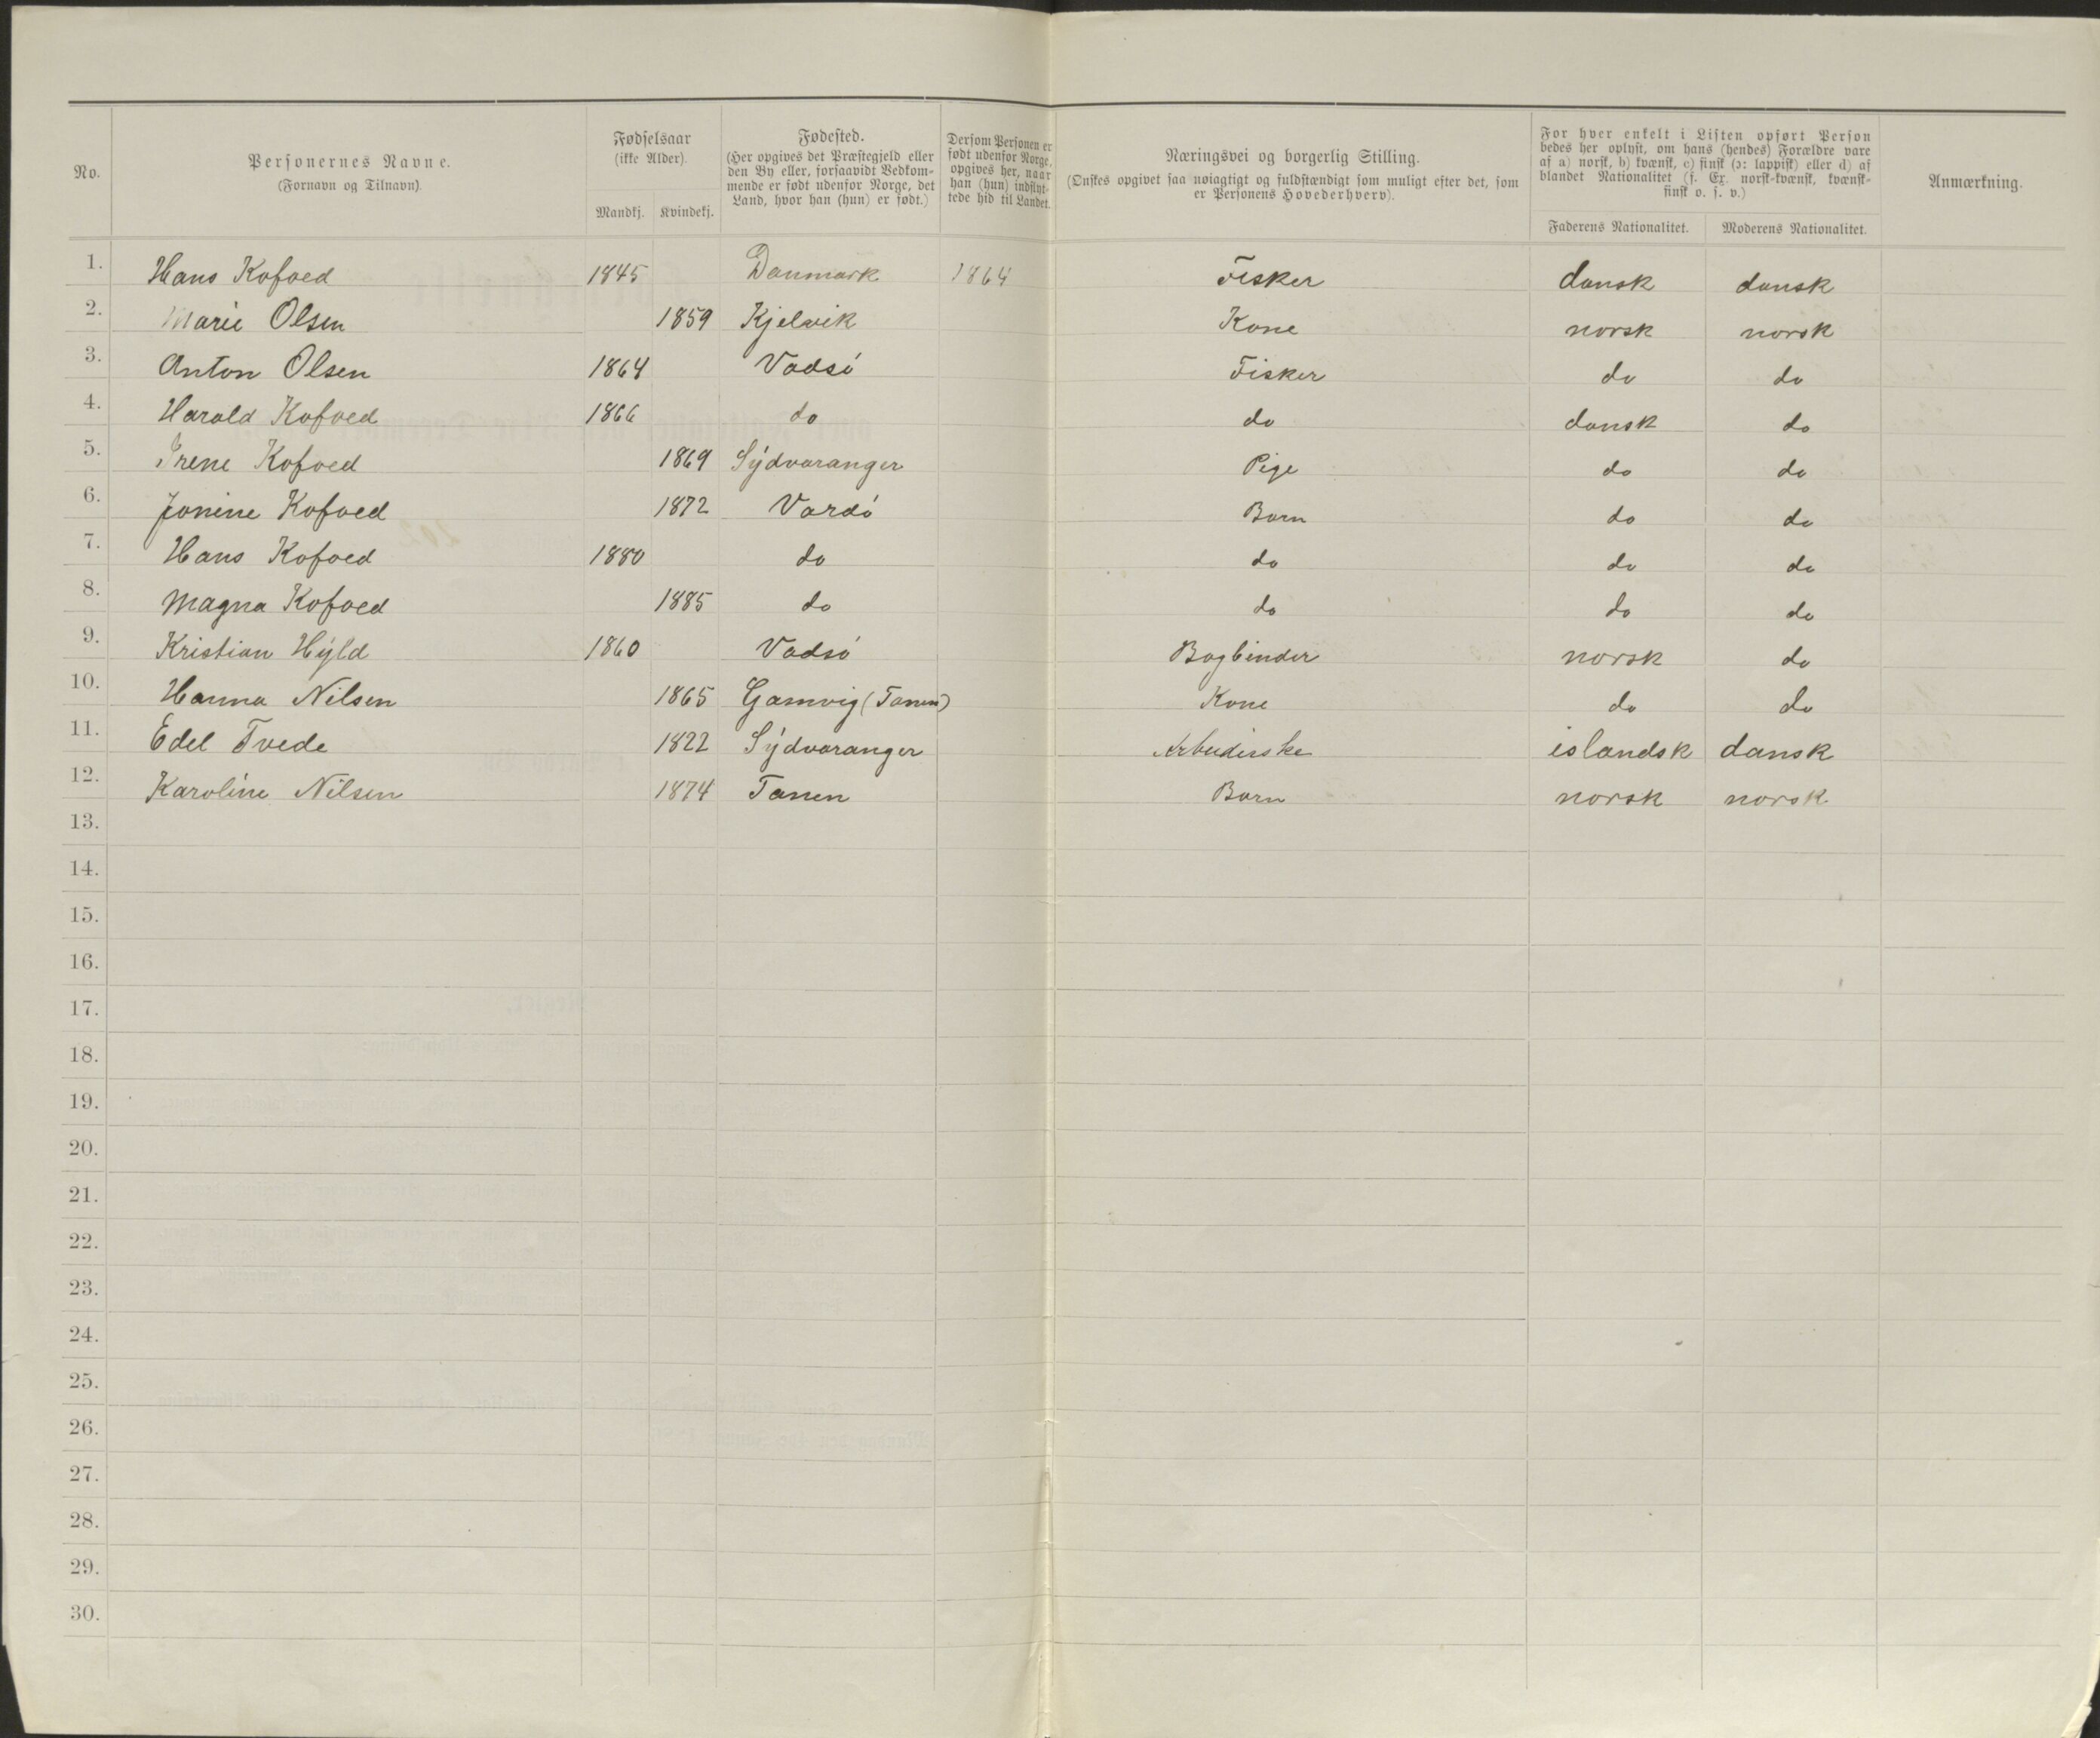 No.
Personernes Navne.
(Fornavn og Tilnavn).
Fødselsaar
(ikke Alder).
Mandkj. Kvindekj.
Fødested.
(Her opgives det Præstegjeld eller
den By eller, forsaavidt Vedkom-
mende er født udenfor Norge, det
Land, hvor han (hun) er født.)
Dersom Personen er
født udenfor Norge,
opgives her, naar
han (hun) indflyt-
tede hid til Landet.
Næringsvei og borgerlig Stilling.
(Ønskes opgivet saa nøiagtigt og fuldstændigt som muligt efter det, som
er Personens Hovederhverv).
For hver enkelt i Listen opført Person
bedes her oplyst, om hans (hendes) Forældre vare
af a) norsk, b) kvænsk, c) finsk (ɔ: lappisk) eller d) af
blandet Nationalitet (f. Ex. norsk-kvænsk, kvænsk-
finsk o. s. v.)
Faderens Nationalitet. Moderens Nationalitet.
Anmærkning.
1. Hans Kofoed 1845 Danmark 1864 Fisker dansk dansk
2. Marie Olsen 1859 Kjelvik Kone norsk norsk
3. Anton Olsen 1864 Vadsö Fisker do do
4. Harald Kofoed 1866 do do dansk do
5. Irene Kofoed 1869 Sydvaranger Pige do do
6. Jonine Kofoed 1872 Vardö Barn do do
7. Hans Kofoed 1880 do do do do
8. Magna Kofoed 1885 do do do do
9. Kristian Hyld 1860 Vadsö Bogbinder norsk do
10. Hanna Nilsen 1865 Gamvig (Tanen) Kone do do
11. Edel Tvede 1822 Sydvaranger Arbeiderske islandsk dansk
12. Karoline Nilsen 1874 Tanen Barn norsk norsk
13.
14.
15.
16.
17.
18.
19.
20.
21.
22.
23.
24.
25.
26.
27.
28.
29.
30.